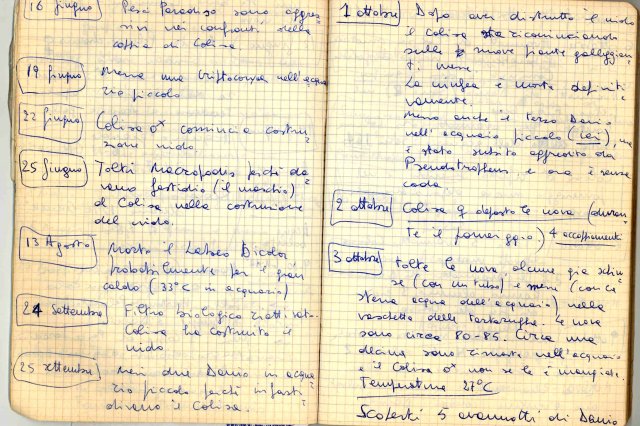 16 Giugno
Pesci Paradiso sono aggres=
sivi nei confronti della
coppia di Colisa.
19 Giugno
Messa una Criptocoryna nell'acqua
rio piccolo
22 Giugno
Colisa ♂ comincia costru=
zione nido.
25 Giugno
Tolti Macropodus perché da=
vano fastidio (il maschio)
al Colisa nella costruzione
del nido.
13 Agosto
Morto il Labeo Bicolor
probabilmente per il gran
caldo (33°C in acquario)
24 Settembre
Filtro biologico riatti
Colisa ha costruito il
nido
25 settembre
Messi due Danio in acqua
rio piccolo perché infasti=
divano i Colisa.
1 ottobre
Dopo aver distrutto il nido
il Colisa sta ricominciando
sulle nuove piante galleggian
ti messe
La ninfea è morta definiti
vamente.
Messo anche il terzo Danio
nell'acquario piccolo (ieri), ma
è stato subito aggredito da
Pseudotropheus e ora è senza
coda
2 ottobre
Colisa ♀ deposto le uova (duran
te il pomeriggio) 4 accoppiamenti
3 ottobre
Tolte le uova, alcune già schiu
se (con un tubo) e messe (con la
stessa acqua dell'acquario) nella
vaschetta delle tartarughe. Le uova
sono circa 80-85. Circa una
decina sono rimaste nell'acquario
e il Colisa ♂ non se le è mangiate.
Temperatura 27°C
Scoperti 5 avannotti di Danio